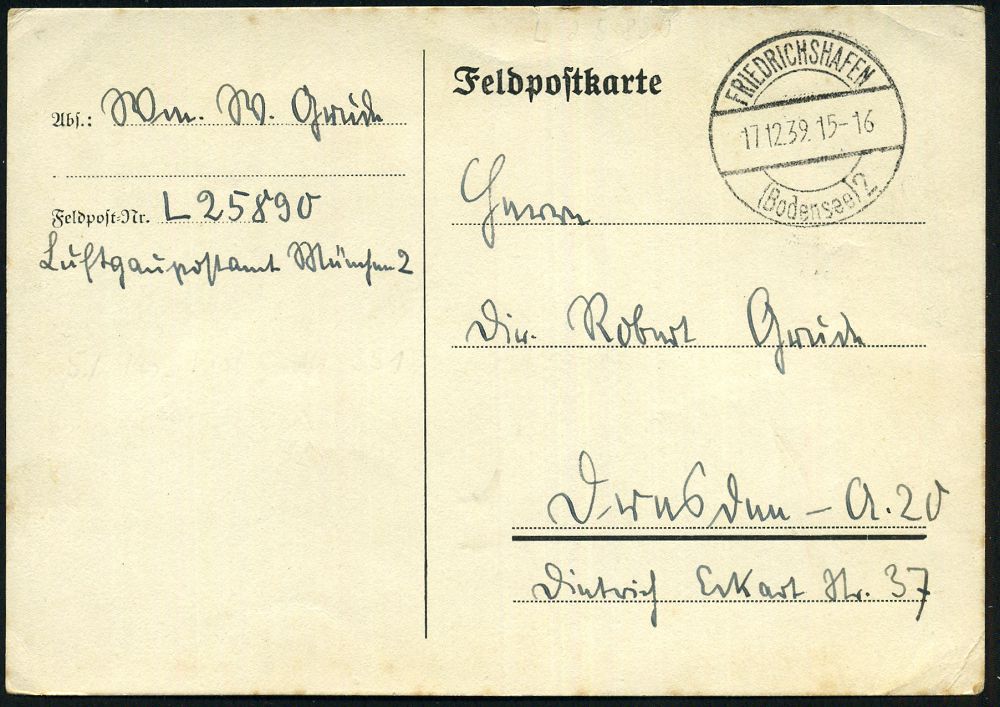 Feldpostkarte
Abs.: Wm. W. Grude
Feldpost-Nr. L 25890
Luftgaupostamt München 2
FRIEDRICHSHAFEN
17.12.39. 15-16
(Bodensee) 2
Herrn
Dir. Robert Grude
Dresden - A. 20
Dietrich Eckart Str. 37